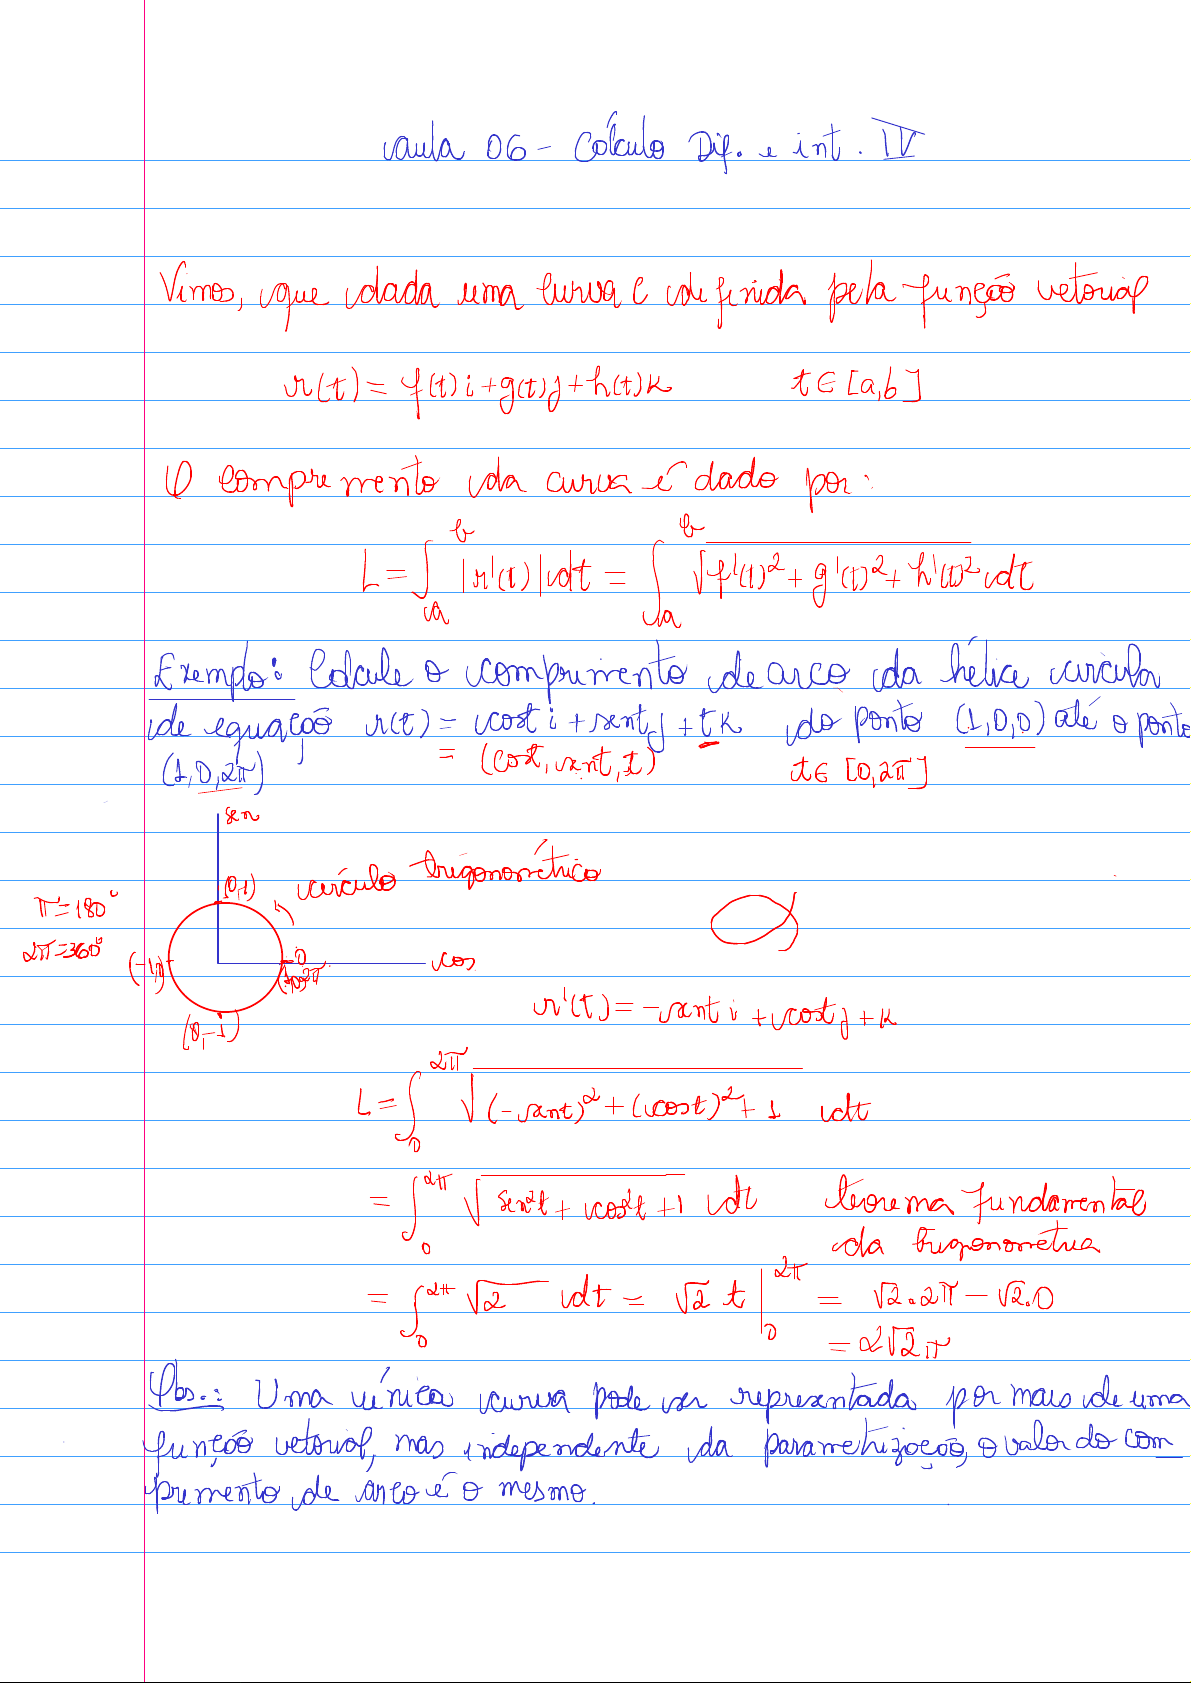 aula 06 - Cálculo Dif. e int. IV
Vimos, que dada uma curva C definida pela função vetorial
r(t) = f(t)i+g(t)j+h(t)k t∈[a,b]
O comprimento da curva é dado por:
L = ∫_a^b |r'(t)|dt = ∫_a^b √(f'(t)²+g'(t)²+h'(t)²) dt
Exemplo: Calcule o comprimento de arco da hélice circular
de equação r(t) = cost i + sent j + tk do ponto (1,0,0) até o ponto
(1,0,2π) = (cost, sent, t) t∈ [0,2π]
sen
(0,1) círculo trigonométrico
π=180°
2π=360°
(-1,0) 0 cos
2π
(0,-1)
r'(t) = -sent i + cost j + k
L = ∫_0^{2π} √((-sent)²+(cost)²+1) dt
= ∫_0^{2π} √(sen²t + cos²t +1) dt teorema fundamental
da trigonometria
= ∫_0^{2π} √2 dt = √2 t |_0^{2π} = √2.2π - √2.0
= 2√2π
Obs.: Uma única curva pode ser representada por mais de uma
função vetorial, mas independente da parametrização, o valor do com
primento de arco é o mesmo.